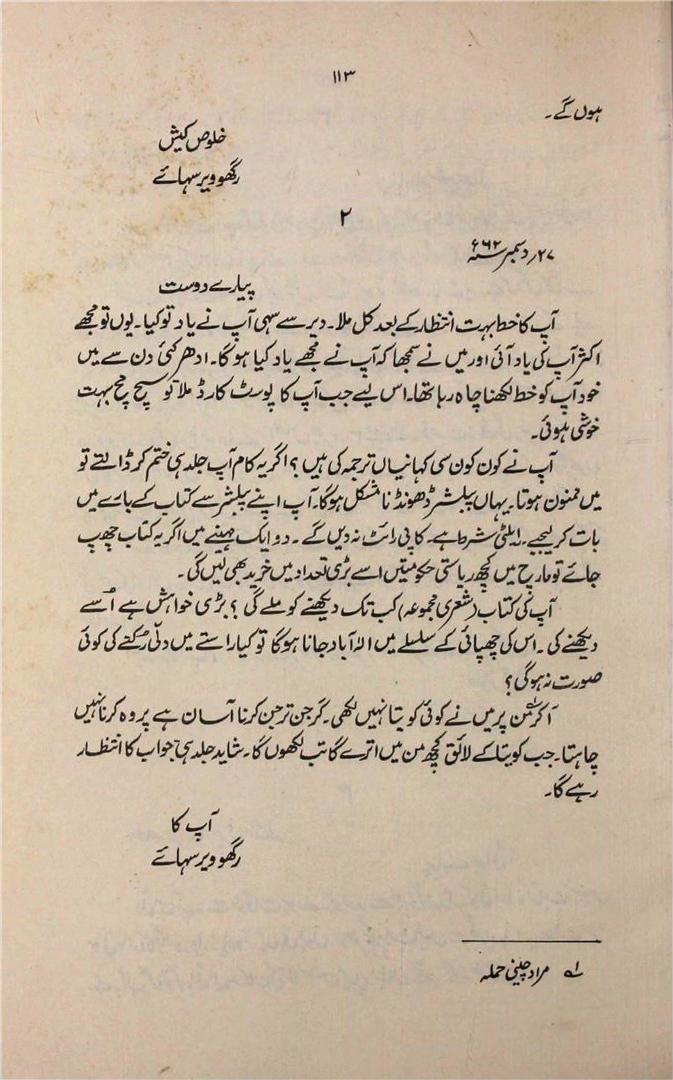 ۱۱۳
ہوں گے۔
خلوص کیش
رگھو ویر سہائے
۲
۲۷؍ دسمبر سنہ ۶۶۲
پیارے دوست
آپ کا خط بہت انتظار کے بعد کل ملا۔ دیر سے سہی آپ نے یاد تو کیا۔ یوں تو مجھے
اکثر آپ کی یاد آئی اور میں نے سمجھا کہ آپ نے مجھے یاد کیا ہوگا۔ ادھر کئی دن سے میں
خود آپ کو خط لکھنا چاہ رہا تھا۔ اس لیے جب آپ کا پوسٹ کارڈ ملا تو سچ مچ بہت
خوشی ہوئی۔
آپ نے کون کون سی کہانیاں ترجمہ کی ہیں؟ اگر یہ کام آپ جلد ہی ختم کر ڈالتے تو
میں ممنون ہوتا۔ یہاں پبلشر ڈھونڈنا مشکل ہوگا۔ آپ اپنے پبلشر سے کتاب کے بارے میں
بات کر لیجیے۔ رایلٹی شرط ہے۔ کاپی رائٹ نہ دیں گے۔ دو ایک مہینے میں اگر یہ کتاب چھپ
جائے تو مارچ میں کچھ ریاستی حکومتیں اسے بڑی تعداد میں خرید بھی لیں گی۔
آپ کی کتاب (شعری مجموعہ) کب تک دیکھنے کو ملے گی؟ بڑی خواہش ہے اُسے
دیکھنے کی۔ اس کی چھپائی کے سلسلے میں الہٰ آباد جانا ہوگا تو کیا راستے میں دلّی رُکنے کی کوئی
صورت نہ ہوگی؟
آکرمن پر میں نے کوئی کویتا نہیں لکھی۔ گرجن ترجن کرنا آسان ہے پر وہ کرنا نہیں
چاہتا۔ جب کویتا کے لائق کچھ من میں اترے گا تب لکھوں گا۔ شاید جلد ہی جواب کا انتظار
رہے گا۔
آپ کا
رگھو ویر سہائے
۱؎ مراد چینی حملہ